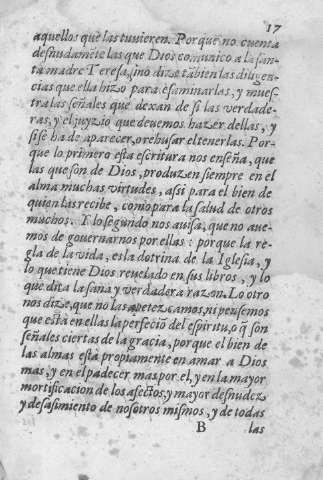 17
aquellos que las tuuieren. Porque no cuenta
desnudamēte las que Dios comunico a la san-
ta madre Teresa, sino dize tābien las diligen-
cias que ella hizo para esaminarlas, y mues-
tra las señales que dexan de si las verdade-
ras, y el juyzio que deuemos hazer dellas, y
si se ha de aparecer, o rehusar el tenerlas. Por-
que lo primero esta escritura nos enseña, que
las que son de Dios, produzen siempre en el
alma muchas virtudes, assi para el bien de
quien las recibe, como para la salud de otros
muchos. Y lo segundo nos auisa, que no aue-
mos de gouernarnos por ellas: porque la re-
gla de la vida, es la dotrina de la Iglesia, y
lo que tiene Dios reuelado en sus libros, y lo
que dita la sana y verdadera razon. Lo otro
nos dize, que no las apetezcamos, ni pensemos
que està en ellas la perfeciō del espiritu, o q̄ son
señales ciertas de la gracia, porque el bien de
las almas està propiamente en amar a Dios
mas, y en el padecer mas por el, y en la mayor
mortificacion de los afectos, y mayor desnudez,
y desasimiento de nosotros mismos, y de todas
B las